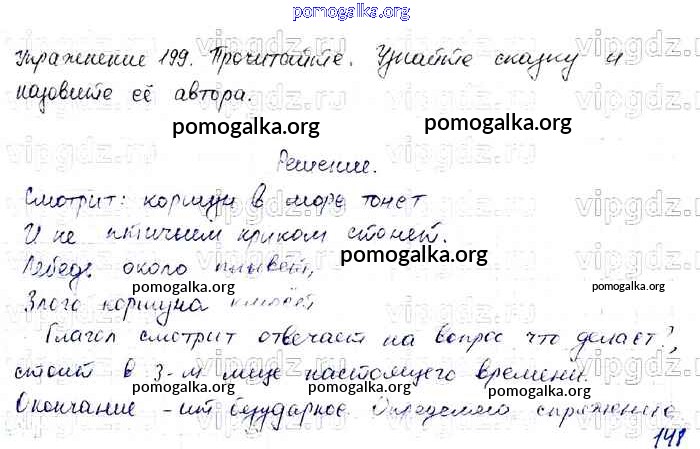 pomogalka.org
Упражнение 199. Прочитайте. Узнайте сказку и
назовите её автора.
pomogalka.org pomogalka.org
Решение.
Смотрит: коршун в море тонет
И не птичьим криком стонет.
pomogalka.org
Лебедь около плывёт,
pomogalka.org pomogalka.org
Злого коршуна клюёт
Глагол смотрит отвечает на вопрос что делает?,
стоит в 3-м лице настоящего времени.
pomogalka.org pomogalka.org pomogalka.org
Окончание -ит безударное. Определяю спряжение
148